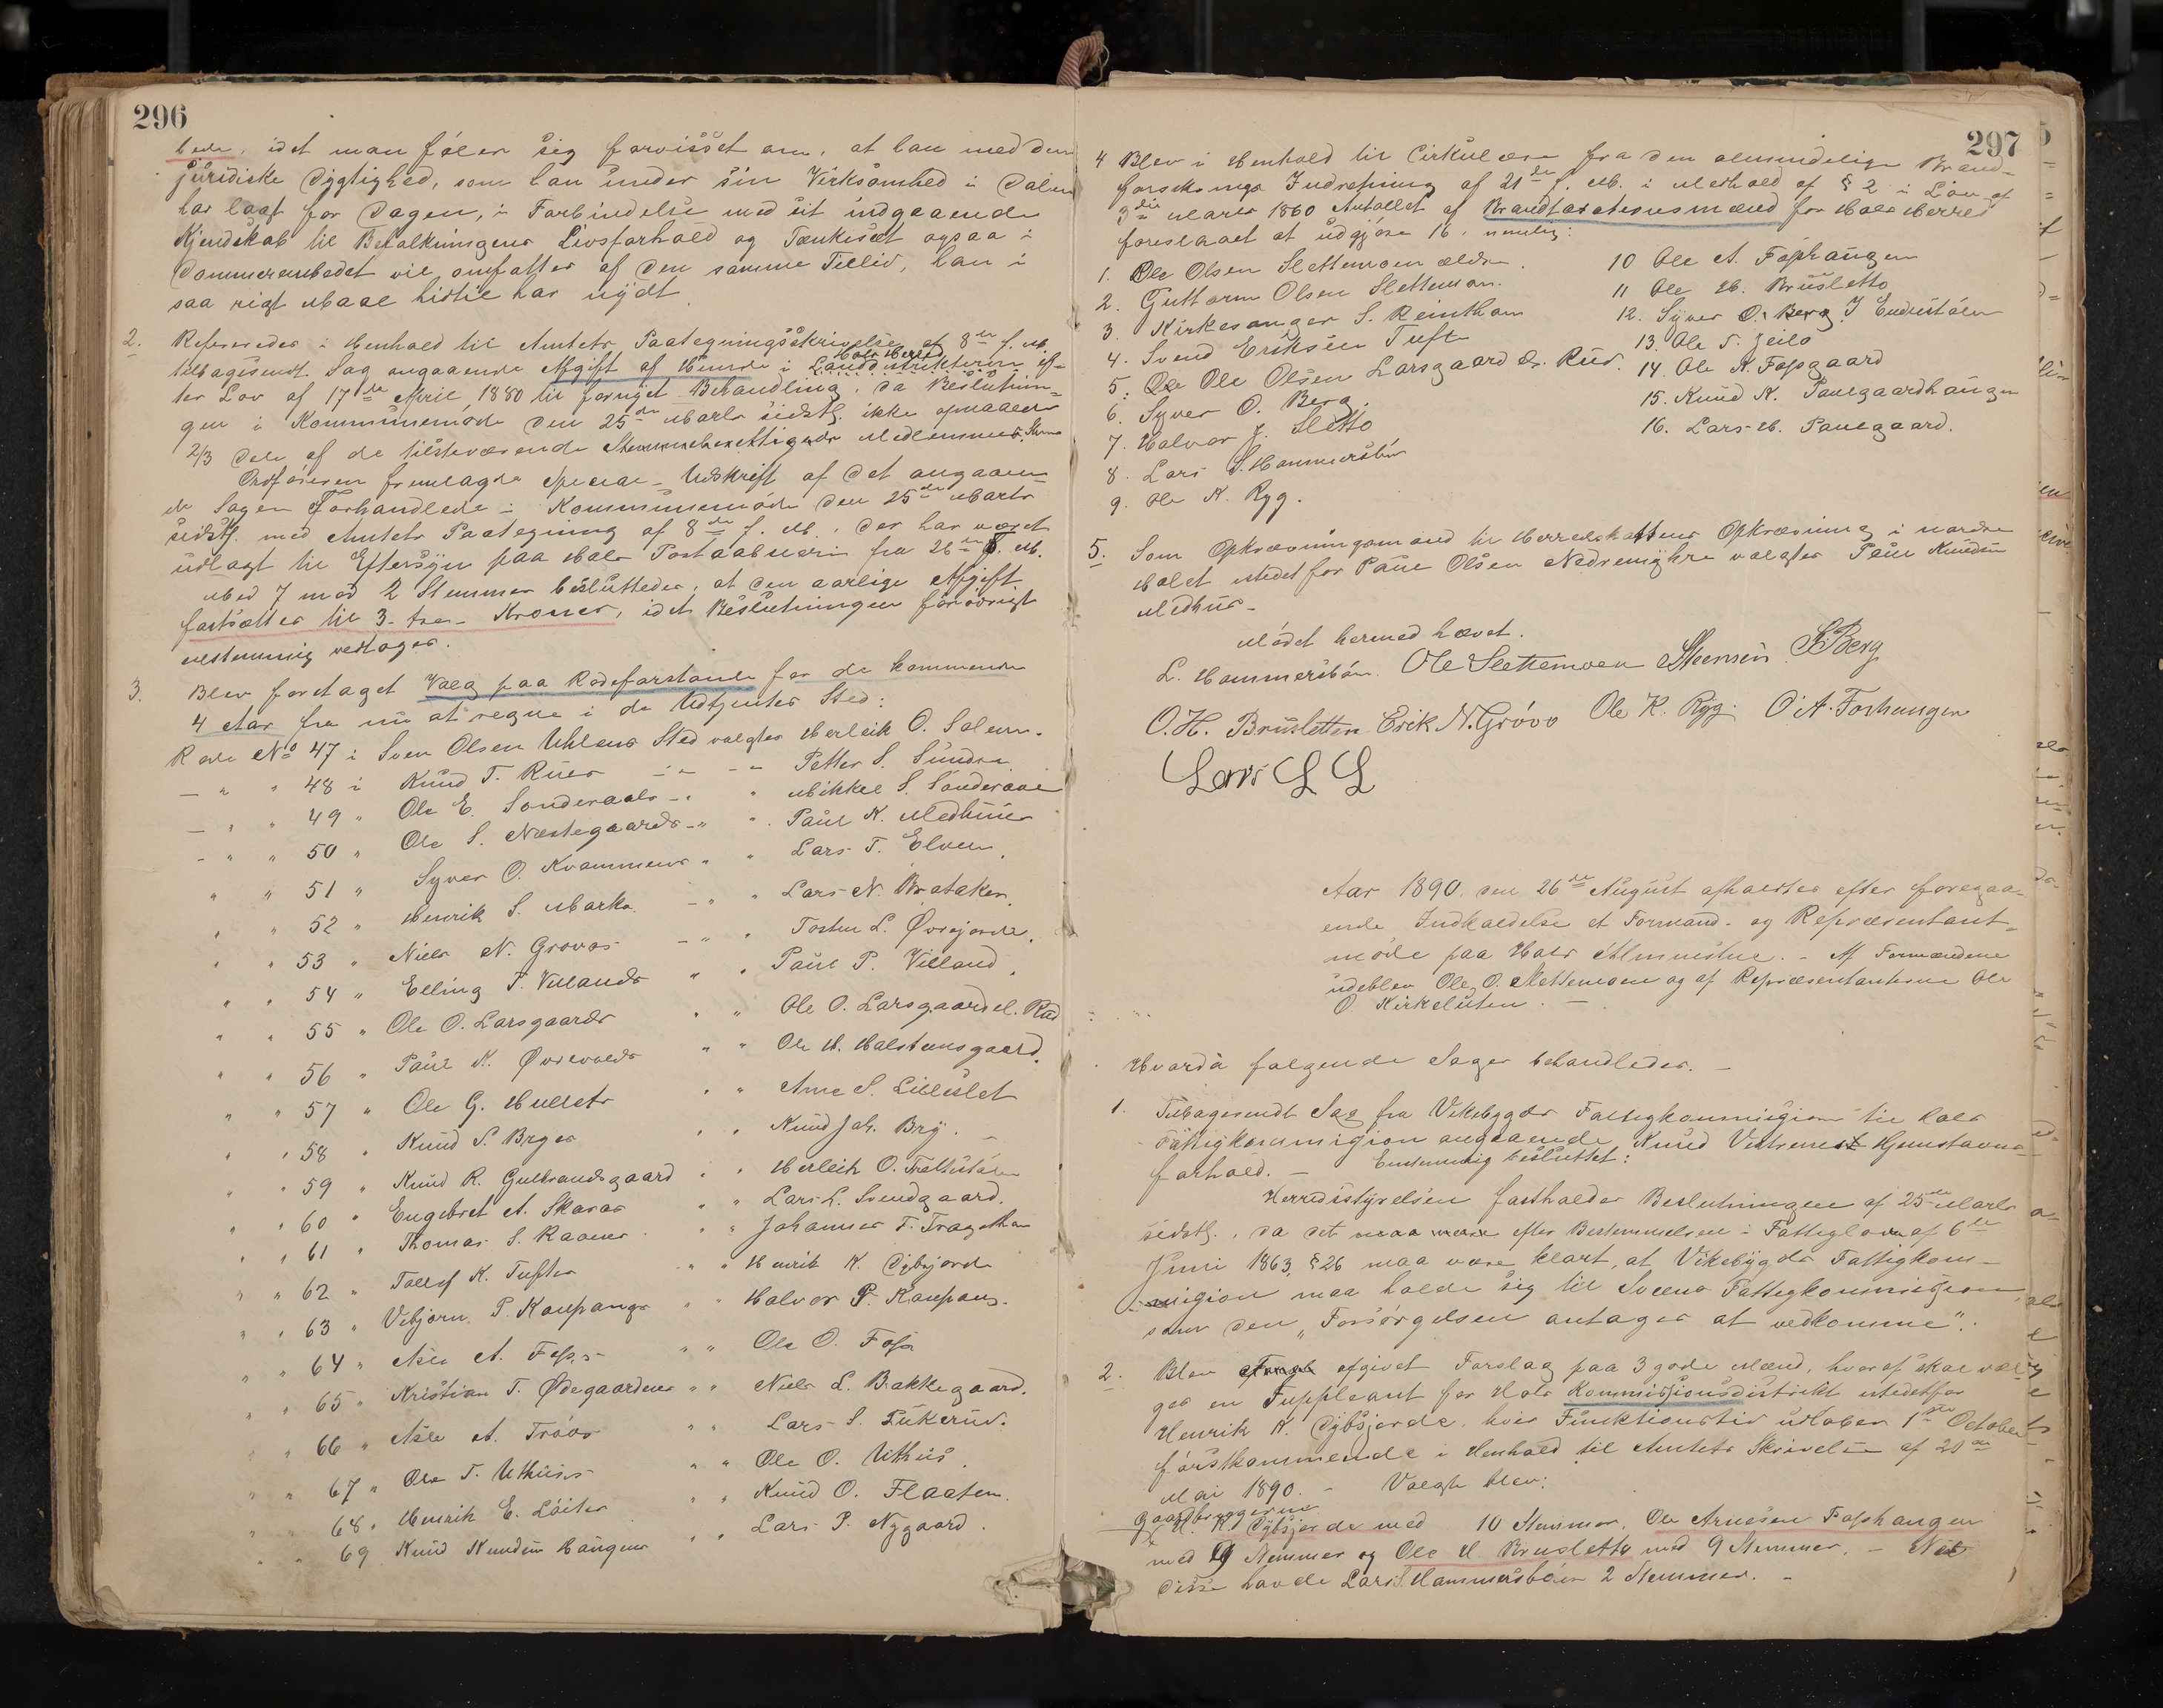 296
bede, idet man føler sig forvisset om, at han med den
juridiske Dygtighed, som han under sin Virksomhed i Dalen
har lagt for Dagen, i Forbindelse med sit indgaaende
Kjendskab til Befolkningens Livsforhold og Tænkesæt ogsaa i
Dommerembedet vil omfattes af den samme Tillid, han i
saa rigt Maal hidtil har nydt.
2. Refereredes i Henhold til Amtets Paategningsskrivelse af 8de f. M.
Hols Herred
tilbagesendt Sag angaaende Afgift af Hunde i Landdistrikterne ef-
ter Lov af 17de April 1880 til fornyet Behandling, da Beslutnin-
gen i Kommunemøde den 25de Marts sidstl. ikke opnaaede
2/3 Dele af de tilstedeværende Stemmeberettigede Medlemmers Stemme
Ordføreren fremlagde Special-Udskrift af det angaaen-
de Sagen Forhandlede i Kommunemøde den 25de Marts
sidstl. med Amtets Paategning af 8de f. M., der har været
udlagt til Eftersyn paa Hols Postaabneri fra 26de f. M.
Med 7 mod 2 Stemmer besluttedes, at den aarlige Afgift
fastsættes til 3 - tre - Kroner, idet Beslutningen forøvrigt
enstemmig vedtoges.
3. Blev foretaget Valg paa Rodeforstande for de kommende
4 Aar fra nu at regne i de Udtjentes Sted:
Rode No 47 i Sven Olsen Uhlens Sted valgtes Herleik O. Solem.
— " " 48 i Knud T. Rues — " — " Petter S. Sundre
— " " 49 " Ole E. Sonderaals — " " Mikkel S. Sonderaal
- " " 50 " Ole S. Næstegaards - " " Paul K. Medhus
" " 51 " Syver O. Kvammens " " Lars T. Elven.
" " 52 " Henrik S. Marks — " " Lars N. Brataker.
" " 53 " Niels N. Groves — " " Tosten L. Øvrejorde.
" " 54 " Elling T. Villands " " Paul P. Villand.
" " 55 " Ole O. Larsgaards " " Ole O. Larsgaard el. Rud
" " 56 " Paul K. Øvrevolds " " Ole H. Halstensgaard.
" " 57 " Ole G. Hullets " " Arne S. Lilleslet
" " 58 " Knud S. Bryes " " Knud Joh. Bry.
" " 59 " Knud R. Gulbrandsgaard " " Herleik O.
" " 60 " Engebret A. Skaros " " Lars L. Svendgaard.
" " 61 " Thomas S. Raaens " " Johannes T. Tragethon
" " 62 " Tollef K. Tuftes " " Henrik K. Dybsjorde
" " 63 " Vebjørn P. Kaupangs " " Halvor P. Kaupang.
" " 64 " Asle A. Foss's " " Ole O. Foss
" " 65 " Kristian T. Ødegaardens " " Niels L. Bakkegaard.
" " 66 " Asle A. Trøos " " Lars S. Pukerud.
" " 67 " Ole T. Uthus's " " Ole O. Uthus.
" " 68 " Henrik E. Løites " " Knud O. Flaaten.
" " 69 Knud Knudsen Haugens " " Lars P. Nygaard.
297
4 Blev i Henhold til Cirkulære fra den almindelige Brand-
forsikrings Indretning af 21de f. M. i Medhold af § 2 i Lov af
3die Marts 1860 Antallet af Brandtaxtationsmænd for Hols Herred
foreslaaet at udgjøre 16, nemlig:
1. Ole Olsen Slettemoen ældre.
2. Guttorm Olsen Slettemoen.
3. Kirkesanger S. Reinthon
4. Svend Eriksen Tuft
5. Ole Olsen Larsgaard el. Rud.
6. Syver O. Berg.
7. Halvor J. Sletto
8. Lars S. Hammersbøn
9. Ole K. Ryg.
10 Ole A. Fosshaugen
11 Ole H. Brusletto
12. Syver O. Berg J Endrestølen
13. Ole T. Jeilo
14. Ole K. Fossgaard
15. Knud K. Paulegaardhaugen
16. Lars H. Paulegaard.
5. Som Opkrævningsmand til Herredskattens Opkrævning i nordre
Hol istedetfor Paul Olsen Nedremyhre valgtes Paul Knudsen
Medhus.
Mødet hermed hævet.
L. Hammersbøn. Ole Slettemoen ASteensen S. Berg
O.H. Brusletten Erik N. Grøvo Ole K. Ryg. O A. Foshaugen
Lars L L
Aar 1890 den 26de August afholdtes efter foregaa-
ende Indkaldelse et Formand- og Repræsentant-
møde paa Hols Almuestue. - Af Formændene
udeblev Ole O. Slettemoen og af Repræsentanterne Ole
O Kirkesluten. —
Hvorda følgende Sager behandledes. —
1. Tilbagesendt Sag fra Vikebygds Fattigkommission til Hols
Fattigkommision angaaende Knud Hjemstavns-
forhold. — Enstemmig besluttet:
Herredsstyrelsen fastholder Beslutningen af 25de Marts
sidstl., da det maa efter Bestemmelsen i Fattigloven af 6te
Juni 1863, § 26 maa være klart, at Vikebygds Fattigkom-
migion maa holde sig til Sveens Fattigkommission,
som den „Forsørgelsen antages at vedkomme".
2. Blev afgivet Forslag paa 3 gode Mænd, hvoraf skal væl-
ges en Suppleant for Hols Kommissionsdistrikt istedetfor
Henrik K. Dybsjorde, hvis Funktionstid udløber 1ste October
førstkommende i Henhold til Amtets Skrivelse af 20de
Mai 1890. - Valgte blev:
Gaardbrugerne
H. K. Dybsjorde med 10 Stemmer, Ole Arnesen Fosshaugen
med 9 Stemmer og Ole H. Brusletto med 9 Stemmer. —
disse havde Lars S. Hammersbøen 2 Stemmer. -